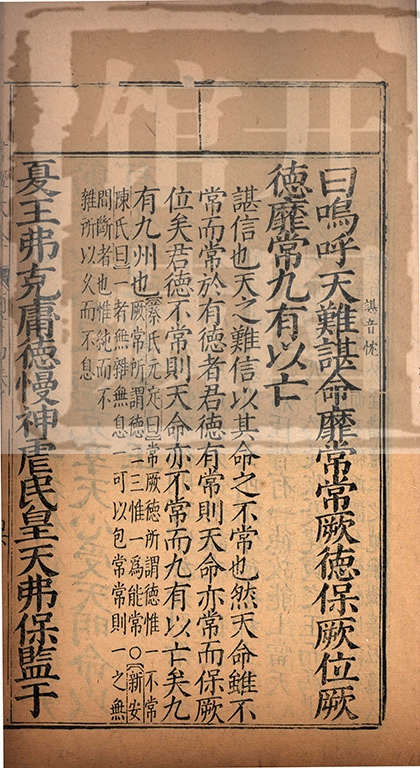 諶音忱
曰嗚呼天難諶命靡常常厥德保厥位厥
德靡常九有以亡
諶信也天之難信以其命之不常也然天命雖不
常而常於有德者君德有常則天命亦常而保厥
位矣君德不常則天命亦不常而九有以亡矣九
有九州也
蔡氏元度曰常厥德所謂德惟一不常
厥常所謂德二三惟一爲能常○新安
陳氏曰一者無雜無息一可以包常常則一之無
間斷者也惟純而不
雜所以久而不息
夏王弗克庸德慢神虐民皇天弗保監于